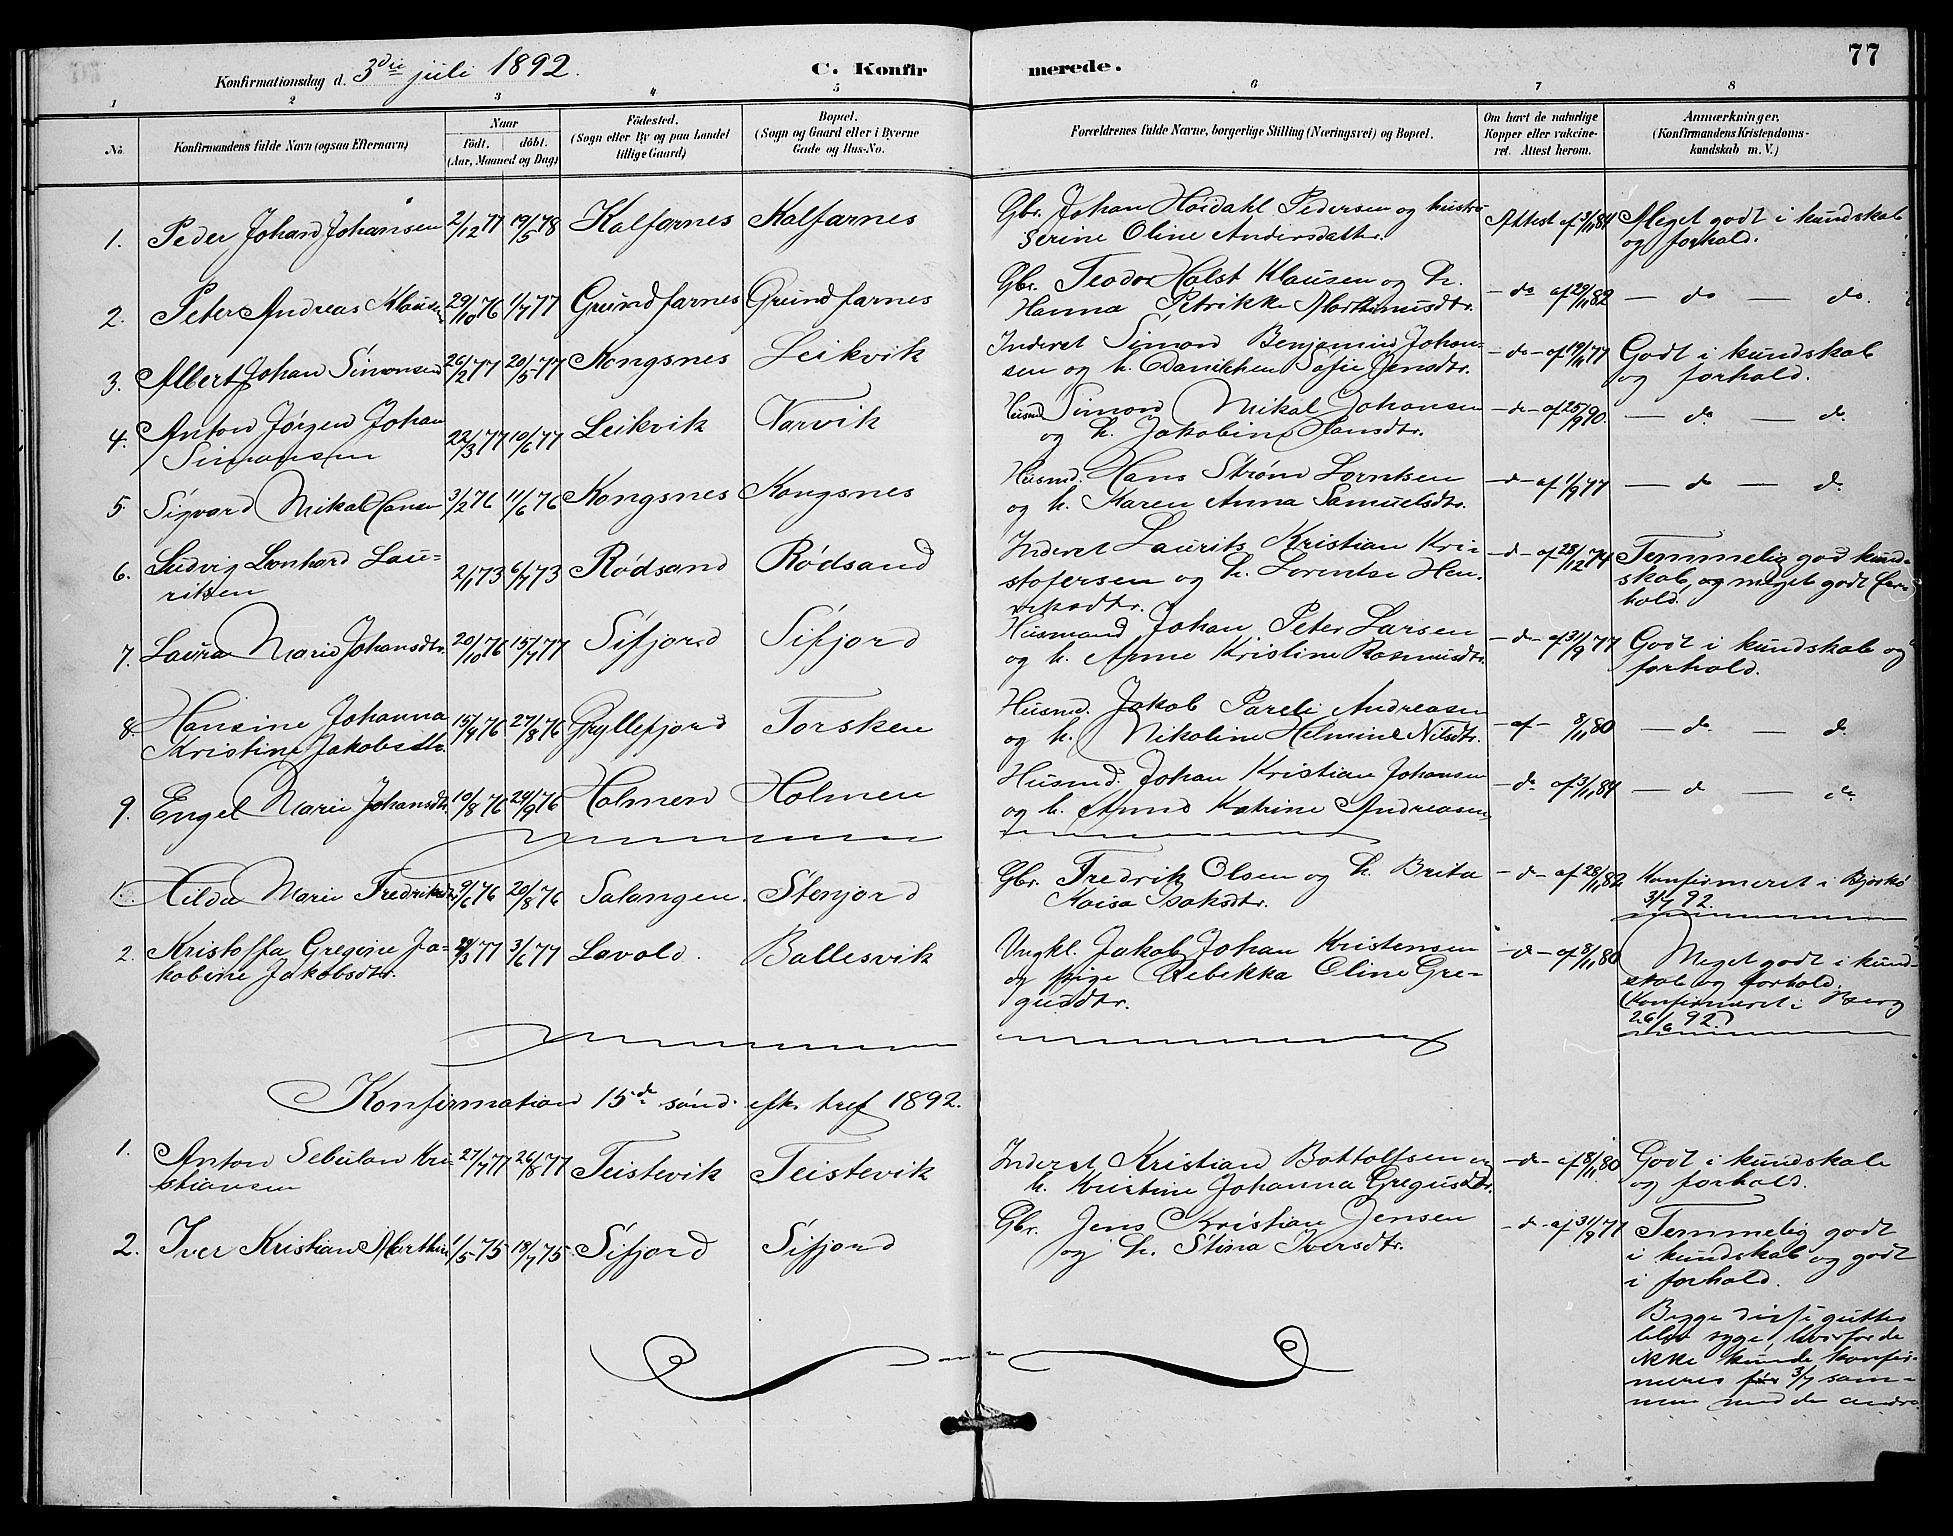 77
Konfirmationsdag d. 3die juli 1892.
C. Konfirmerede.
1 2 3 4 5 6 7 8
No.
Konfirmandens fulde Navn (ogsaa Efternavn)
Naar
födt. döbt.
(Aar, Maaned og Dag)
Födested.
(Sogn eller By og paa Landet
tillige Gaard)
Bopæl.
(Sogn og Gaard eller i Byerne
Gade og Hus-No.
Forældrenes fulde Navne, borgerlige Stilling (Næringsvei) og Bopæl.
Om havt de naturlige
Kopper eller vakcineret. Attest herom.
Anmærkninger.
(Konfirmandens Kristendomskundskab m. V.)
1. Peder Johan Johansen 2/12 77 19/5 78 Kalfarnes Kalfarnes Gbr. Johan Hoidahl Pedersen og hustru
Serine Oline Andersdatter. Attest af 3/11 84 Meget godt i kundskab
og forhold.
2. Peter Andreas Klausen 29/10 76 1/7 77 Grundfarnes Grundfarnes Gbr. Teodor Holst Klausen og h.
Hanna Petrikke Marthinusdtr. - do af 29/11 82 — do — do.
3. Albert Johan Simonsen 26/2 77 20/5 77 Kongsnes Leikvik Inderst Simon Benjamin Johansen og h. Danikken Sofie Jensdtr. - do - af 19/11 77 Godt i kundskab
og forhold.
4. Anton Jørgen Johan
Simonsen 22/3 77 10/6 77 Leikvik Varvik Husmd Simon Mikal Johansen
og h. Jakobine Hansdtr. - d - af 25/9 90. — do — do
5. Sigvard Mikal Hansen 3/2 76 11/6 76 Kongsnes Kongsnes Husmd. Hans Strøm Lorntsen
og h. Karen Anna Samuelsdtr. - d - af 1/9 77 — do — do
6. Ludvig Leonhard Lauritsen 2/1 73 6/7 73 Rødsand Rødsand Inderst Laurits Kristian Kristofersen og h. Lorentse Henriksdtr. - d - af 28/12 74 Temmelig god kundskab, og meget godt forhold.
7. Laura Marie Johansdtr. 20/10 76 15/7 77 Sifjord Sifjord Husmand Johan Peter Larsen
og h. Anne Kristine Rasmusdtr. - d - af 31/9 77 Godt i kundskab og
forhold.
8. Hansine Johanna
Kristine Jakobsdtr. 15/4 76 27/8 76 Gryllefjord Torsken Husmd. Jakob Pareli Andreasen
og h. Nikoline Helmine Nilsdtr. - af - 8/11 80 — do — do
9. Engel Marie Johansdtr. 10/8 76 24/9 76 Holmen Holmen Husmd. Johan Kristian Johansen
og h. Anne Katrine Andreasen - do af 3/11 84 — do — do
1. Hilda Marie Fredriksdtr. 9/6 76 20/8 76 Salangen Stenjord Gbr. Fredrik Olsen og h. Brita
Kaisa Isaksdtr. - d - af 28/11 82 Konfirmeret i Bjarkö
3/7 92.
2. Kristoffa Gregine Jakobine Jakobsdtr. 3/6 77 Lavold. Ballesvik Ungkl. Jakob Johan Kristensen
og pige Rebekka Oline Gregusdtr. - d - af 8/11 80 Meget godt i kundskab og forhold.
(Konfirmeret i Berg
26/6 92.)
Konfirmation 15de sønd. eft. tref 1892.
1. Anton Sebulon Kristiansen 27/7 77 26/8 77 Teistevik Teistevik Inderst Kristian Bottolfsen og
h. Kristine Johanna Gregusdtr. - d - af 8/11 80 Godt i kundskab
og forhold.
2. Iver Kristian Marthin 1/5 75 18/7 75. Sifjord Sifjord Gbr. Jens Kristian Jensen
og h. Stina Iversdtr. - d - af 31/9 77 Temmelig godt
i kundskab og godt
i forhold.
Begge disse gutter
blev syge, hvorfor de
ikke kunde konfirmeres før 3/7 sammen med de andre